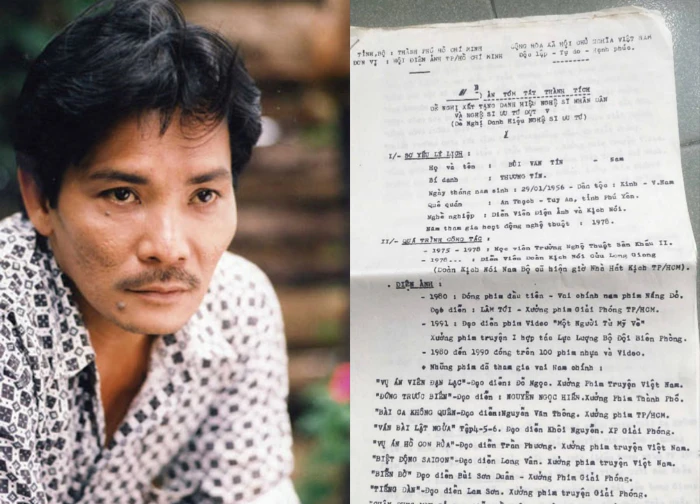 TỈNH, BỘ : THÀNH PHỐ HỒ CHÍ MINH
ĐƠN VỊ : HỘI ĐIỆN ẢNH TP/HỒ CHÍ MINH
CỘNG HÒA XÃ HỘI CHỦ NGHĨA VIỆT NAM
Độc lập - Tự do - Hạnh phúc.
BẢN TÓM TẮT THÀNH TÍCH
ĐỀ NGHỊ XÉT TẶNG DANH HIỆU NGHỆ SĨ NHÂN DÂN
VÀ NGHỆ SĨ ƯU TÚ ĐỢT V
(Đề Nghị Danh Hiệu NGHỆ SĨ ƯU TÚ)
I/- SƠ YẾU LÝ LỊCH :
Họ và tên : BÙI VĂN TÍN - Nam
Bí danh : THƯƠNG TÍN.
Ngày tháng năm sinh : 29/01/1956 - Dân tộc : Kinh - V.Nam
Quê quán : An Thạch - Tuy An, tỉnh Phú Yên.
Nghề nghiệp : Diễn Viên Điện Ảnh và Kịch Nói.
Năm tham gia hoạt động nghệ thuật : 1978.
II/- QUÁ TRÌNH CÔNG TÁC :
- 1975 - 1978 : Học viên Trường Nghệ Thuật Sân Khấu II.
- 1978... : Diễn Viên Đoàn Kịch Nói Cửu Long Giang
(Đoàn Kịch Nói Nam Bộ cũ hiện giờ Nhà Hát Kịch TP/HCM).
. ĐIỆN ẢNH :
- 1980 : Đóng phim đầu tiên - Vai chính nam phim Nắng Đỏ.
Đạo diễn : LÂM TỚI - Xưởng phim Giải Phóng TP/HCM.
- 1991 : Đạo diễn phim Video "Một Người Từ Mỹ Về"
Xưởng phim truyện I hợp tác Lực Lượng Bộ Đội Biên Phòng.
- 1980 đến 1990 đóng trên 100 phim nhựa và Video.
- Những phim đã tham gia vai Nam chính :
"VỤ ÁN VIÊN ĐẠN LẠC"-Đạo diễn: Đỗ Ngọc. Xưởng Phim Truyện Việt Nam.
TRƯỚC BIỂN"-Đạo diễn : NGUYỄN NGỌC HIẾN.Xưởng Phim Thành Phố.
"BÀI CA KHÔNG QUÊN-Đạo diễn:Nguyễn Văn Thông. Xưởng phim TP/HCM.
"VÁN BÀI LẬT NGỬA" Tập4-5-6. Đạo diễn Khôi Nguyên. XP Giải Phóng.
"VỤ ÁN HỒ CON RÙA"-Đạo diễn Trần Phương. Xưởng phim truyện Việt Nam.
"BIỆT ĐỘNG SAIGON"-Đạo diễn Long Vân. Xưởng phim truyện Việt Nam.
"BIỂN BỜ" Đạo diễn Bùi Sơn Duân - Xưởng Phim Giải Phóng.
"TIẾNG ĐÀN"-Đạo diễn Lam Sơn. Xưởng phim truyện Giải Phóng.